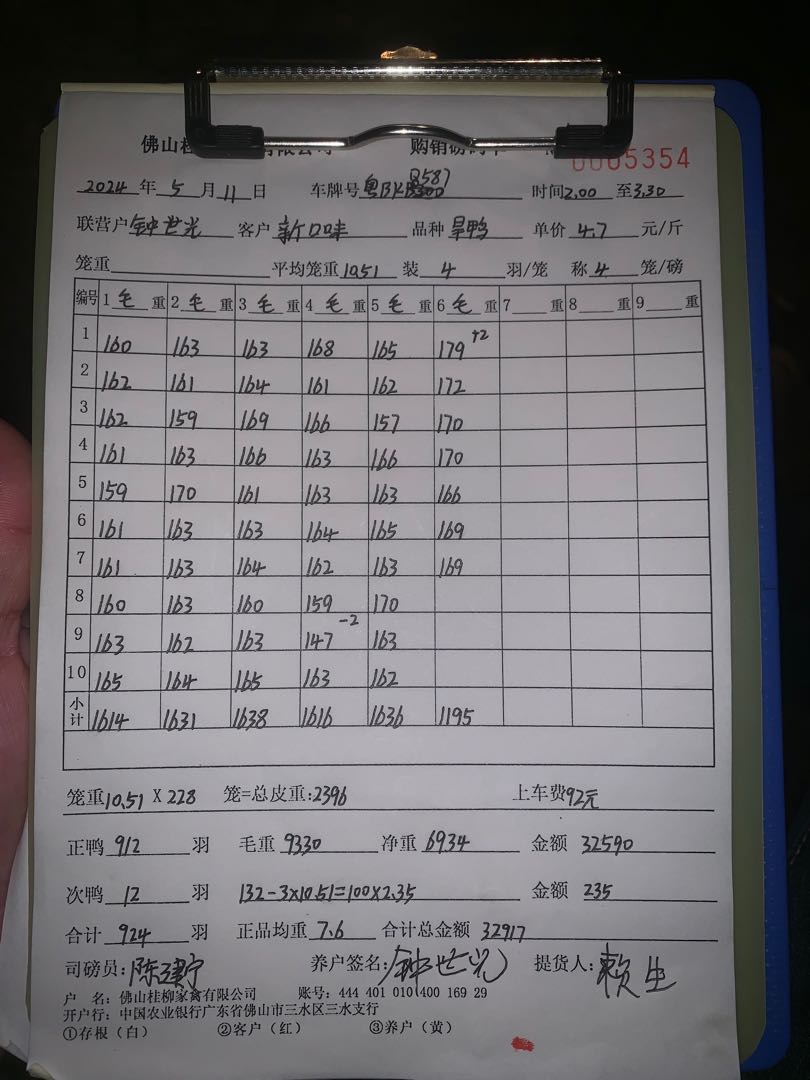 佛山桂 有限公司 购销磅码单 0005354
2024 年 5 月 11 日 车牌号 粤BK Q587 时间 2.00 至 3.30
联营户 钟世光 客户 新口味 品种 旱鸭 单价 4.7 元/斤
笼重 平均笼重 10.51 装 4 羽/笼 称 4 笼/磅
编号 1 毛 重 2 毛 重 3 毛 重 4 毛 重 5 毛 重 6 毛 重 7 重 8 重 9 重
1 160 163 163 168 165 179 +2
2 162 161 164 161 162 172
3 162 159 169 166 157 170
4 161 163 166 163 166 170
5 159 170 161 163 163 166
6 161 163 163 164 165 169
7 161 163 164 162 163 169
8 160 163 160 159 170
9 163 162 163 147 -2 163
10 165 164 165 163 162
小计 1614 1631 1638 1616 1636 1195
笼重 10.51 X 228 笼=总皮重:2396 上车费 92元
正鸭 912 羽 毛重 9330 净重 6934 金额 32590
次鸭 12 羽 132-3×10.51=100×2.35 金额 235
合计 924 羽 正品均重 7.6 合计总金额 32917
司磅员: 陈建宁 养户签名: 钟世光 提货人: 赖生
户 名: 佛山桂柳家禽有限公司 账号: 444 401 010 400 169 29
开户行: 中国农业银行广东省佛山市三水区三水支行
①存根（白） ②客户（红） ③养户（黄）